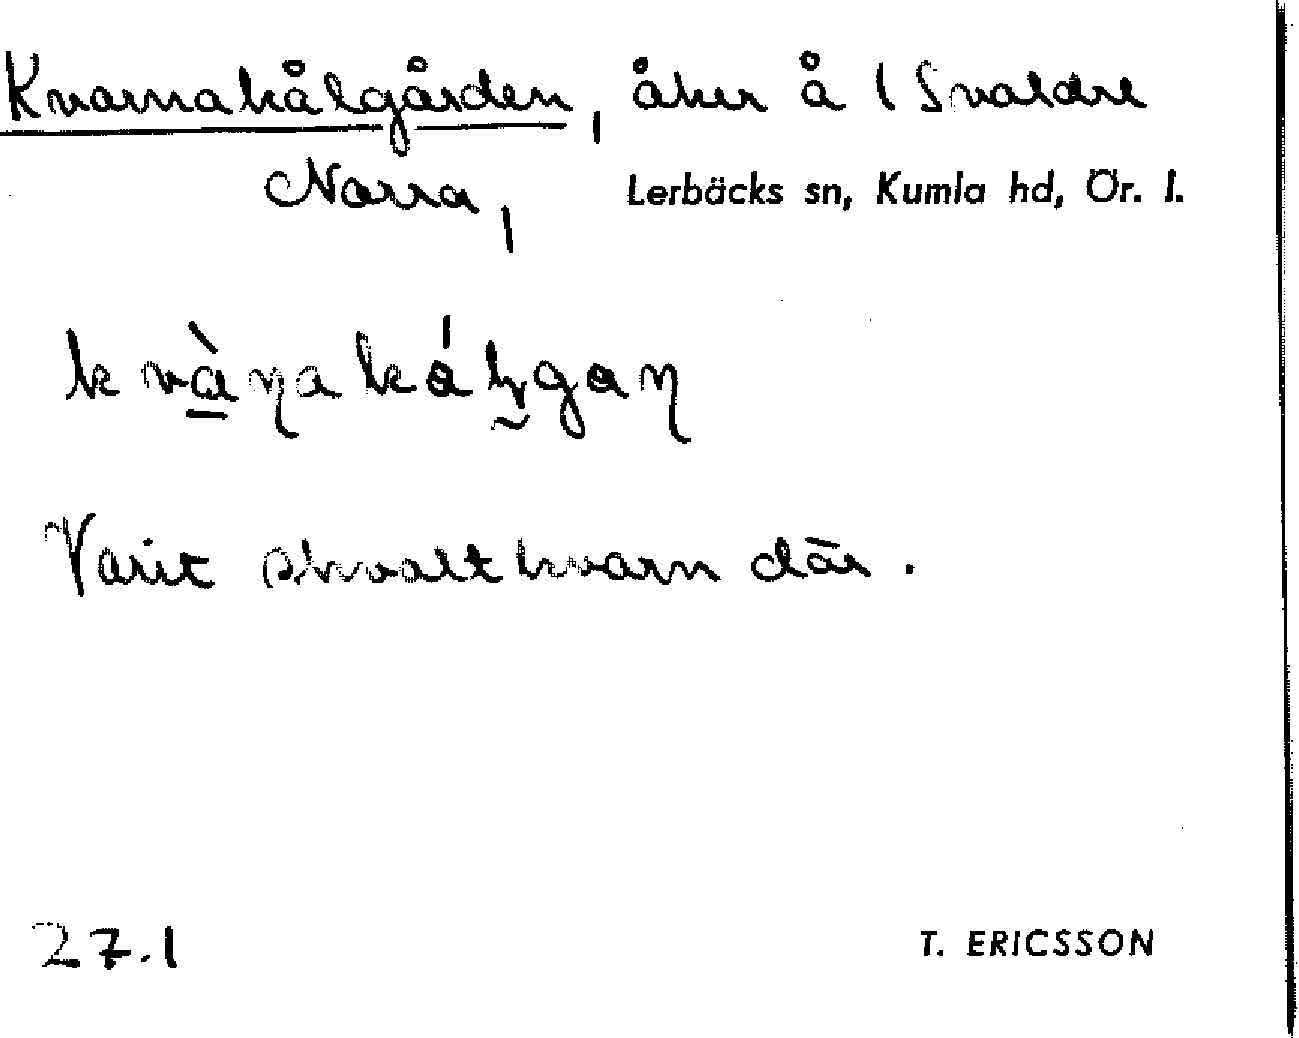 Kvarnakålgården, åker å 1 Svaldre
Norra, Lerbäcks sn, Kumla hd, Ör. l.
Varit skvaltkvarn där.
27.1 T. ERICSSON